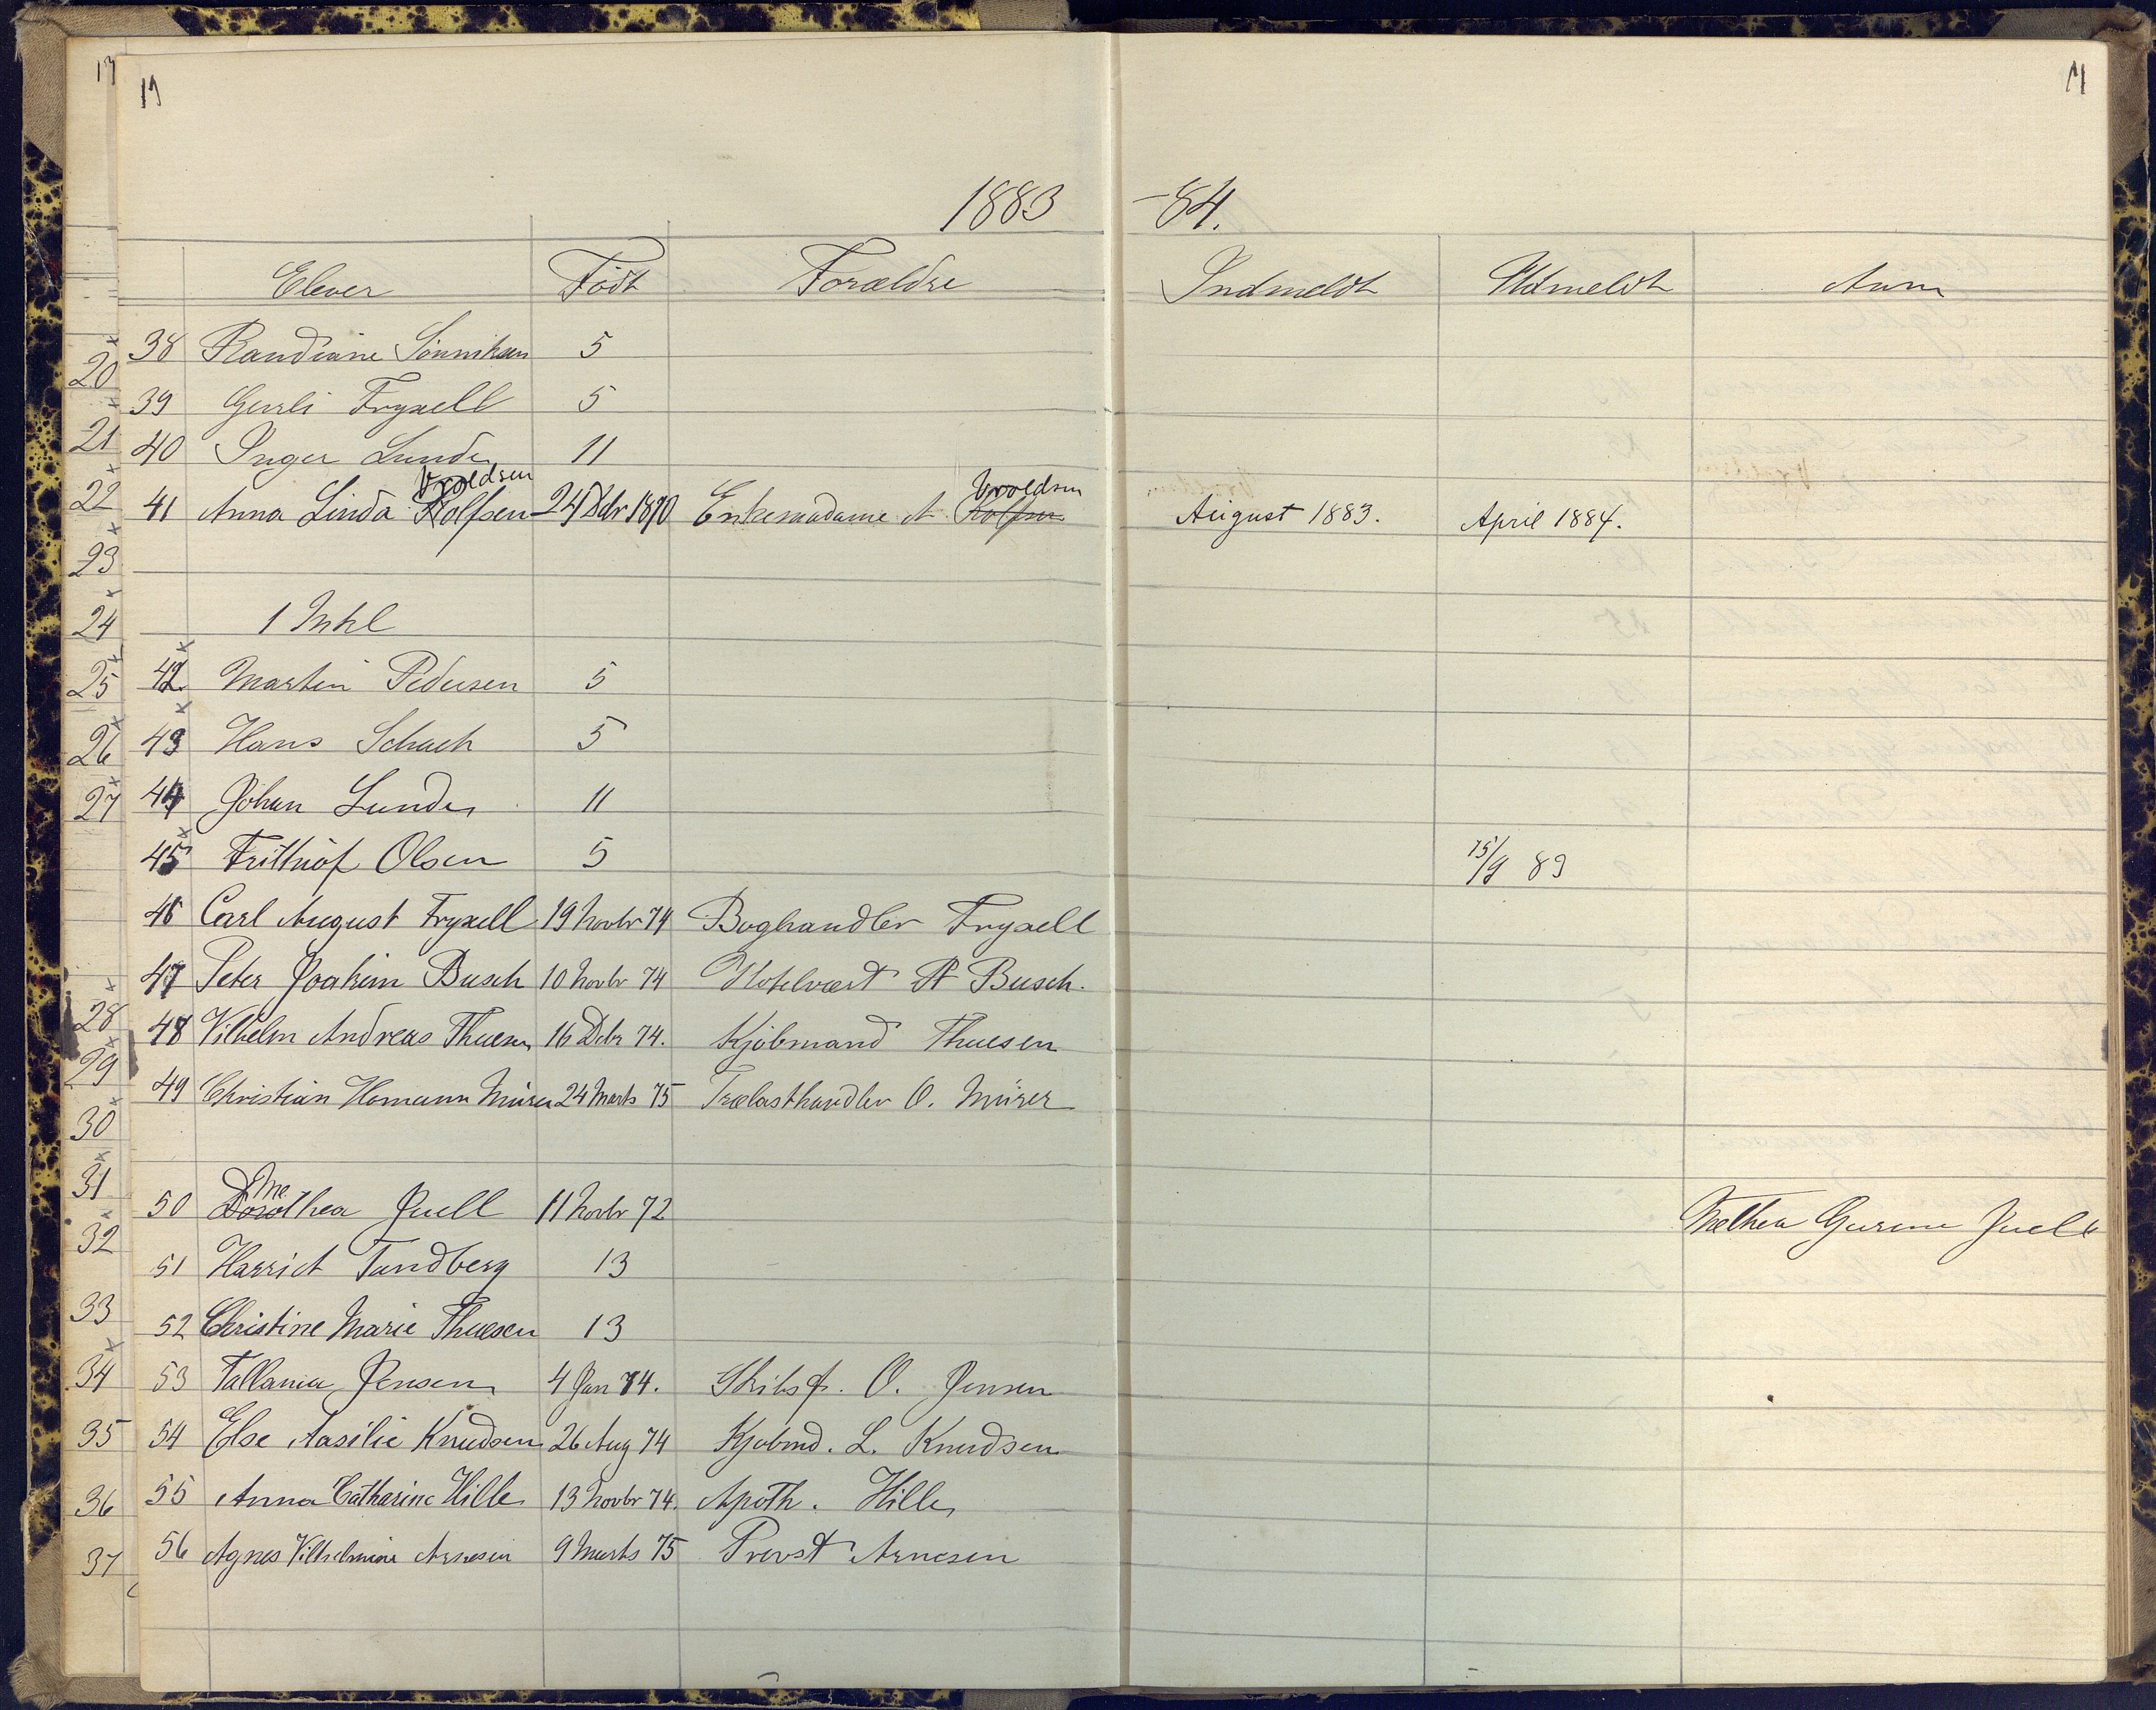 17 17 17
1883 -84.
Elever Född Forældre Indmeldt Udmeldt Anm
38 Randiane Sönniksen 5
39 Gerli Fryxell 5
40 Inger Lunde 11
Vroldsen Vroldsen
41 Anna Linda Rolfsen 24 Dbr 1870 Enkemadame A. Rolfsen August 1883. April 1884.
1 Mkl
42 Martin Pedersen 5
43 Hans Schach 5
44 Johan Lunde 11
45 Frithiof Olsen 5 15/9 83
46 Carl August Fryxell 19 Novbr 74 Boghandler Fryxell
47 Peter Joakim Busch 10 Novbr 74 Hotelvært P Busch.
48 Vilhelm Andreas Thuesen 16 Dcbr 74. Kjöbmand Thuesen
49 Christian Homann Mürer 24 Marts 75 Trælasthandler O. Mürer
Me
50 Dorothea Juell 11 Novbr 72 Methea Gurine Juell
51 Harriet Tandberg 13
52 Christine Marie Thuesen 13
53 Tallania Jensen 4 Jan 74. Skibsf. O. Jensen
54 Else Aasilie Knudsen 26 Aug 74 Kjöbmd. L. Knudsen
55 Anna Catharine Hille 13 Novbr 74. Apoth. Hille
56 Agnes Vilhelmine Arnesen 9 Marts 75 Provst Arnesen
20
21
22
23
24
25
26
27
28
29
30
31
32
33
34
35
36
37